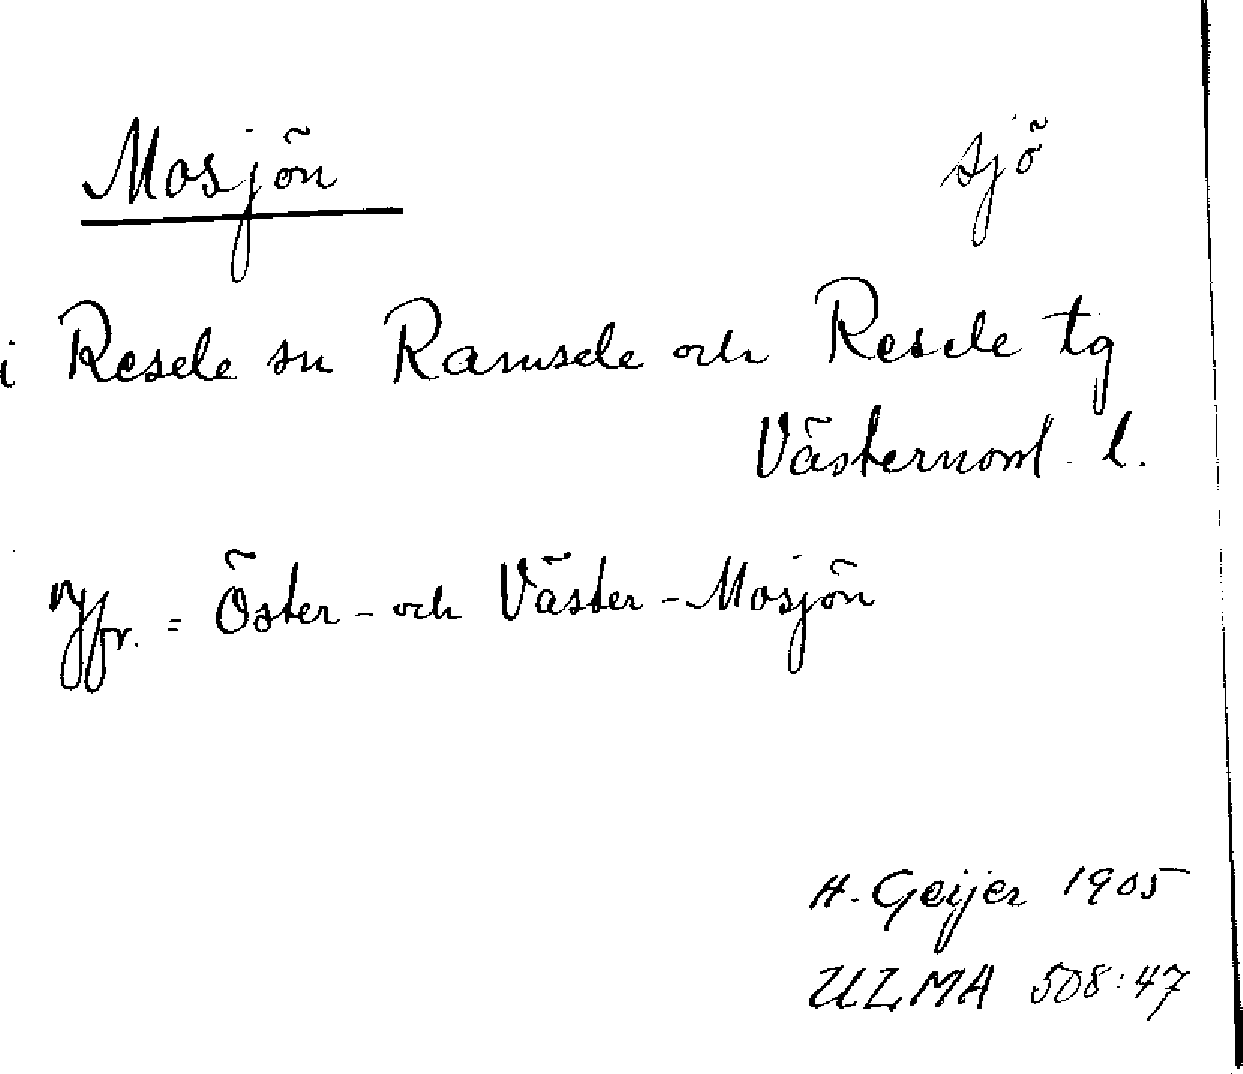 Mosjön sjö
i Resele sn Ramsele och Resele tg
Västernorrl. l.
Jfr. = Öster- och Väster-Mosjön
H. Geijer 1905
ULMA 508:47